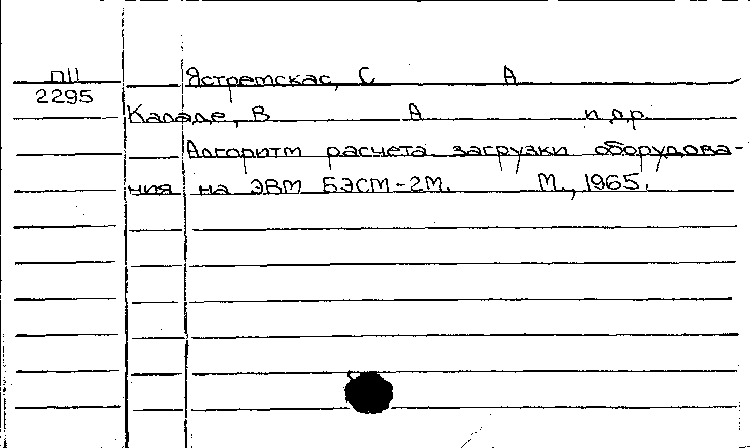 ПII
2295
Ястремскас, С А
Каладе, В А и др.
Алгоритм расчета загрузки оборудова-
ния на ЭВМ БЭСМ-2М. М., 1965.